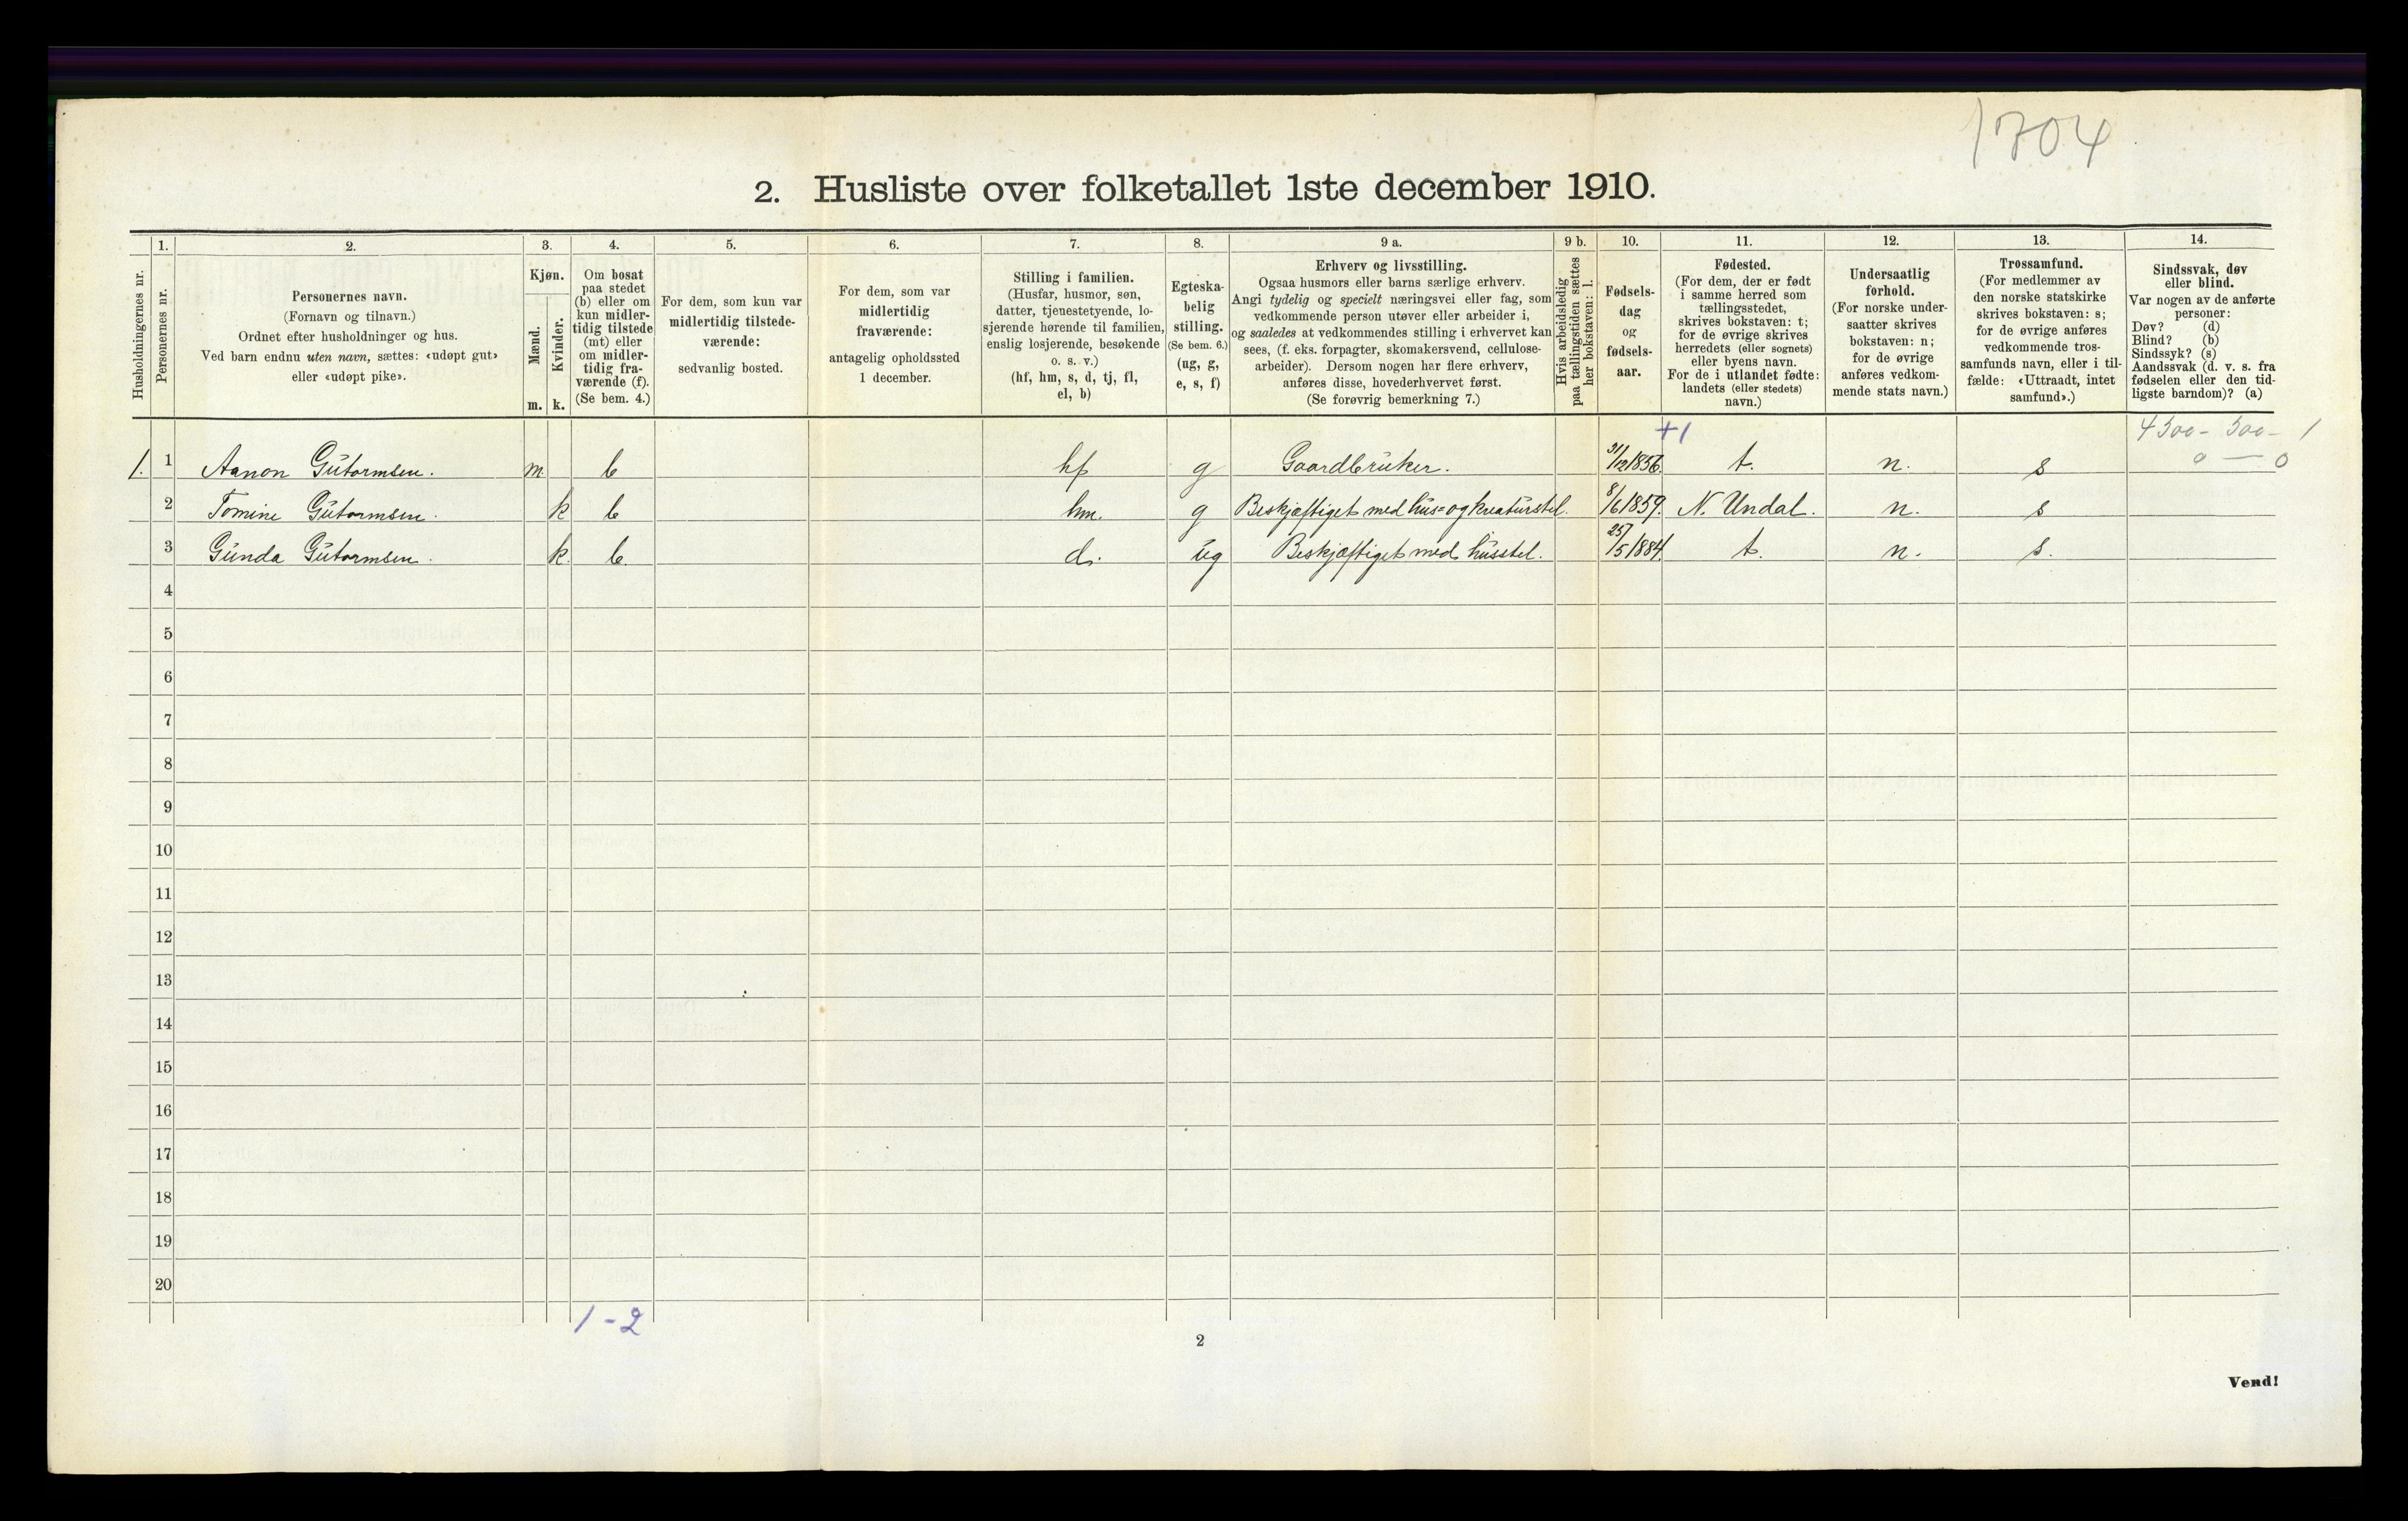 1704
2. Husliste over folketallet 1ste december 1910.
Husholdningernes nr.
1.
Personernes nr.
2.
Personernes navn.
(Fornavn og tilnavn.)
Ordnet efter husholdninger og hus.
Ved barn endnu uten navn, sættes: «udøpt gut»
eller «udøpt pike».
3.
Kjøn.
Mænd.
Kvinder.
m. k.
4.
Om bosat
paa stedet
(b) eller om
kun midler-
tidig tilstede
(mt) eller
om midler-
tidig fra-
værende (f).
(Se bem. 4.)
5.
For dem, som kun var
midlertidig tilstede-
værende:
sedvanlig bosted.
6.
For dem, som var
midlertidig
fraværende:
antagelig opholdssted
1 december.
7.
Stilling i familien.
(Husfar, husmor, søn,
datter, tjenestetyende, lo-
sjerende hørende til familien,
enslig losjerende, besøkende
o. s. v.)
(hf, hm, s, d, tj, fl,
el, b)
8.
Egteska-
belig
stilling.
(Se bem. 6.)
(ug, g,
e, s, f)
9 a.
Erhverv og livsstilling.
Ogsaa husmors eller barns særlige erhverv.
Angi tydelig og specielt næringsvei eller fag, som
vedkommende person utøver eller arbeider i,
og saaledes at vedkommendes stilling i erhvervet kan
sees, (f. eks. forpagter, skomakersvend, cellulose-
arbeider). Dersom nogen har flere erhverv,
anføres disse, hovederhvervet først.
(Se forøvrig bemerkning 7.)
9 b.
Hvis arbeidsledig
paa tællingstiden sættes
her bokstaven: l.
10.
Fødsels-
dag
og
fødsels-
aar.
11.
Fødested.
(For dem, der er født
i samme herred som
tællingsstedet,
skrives bokstaven: t;
for de øvrige skrives
herredets (eller sognets)
eller byens navn.
For de i utlandet fødte:
landets (eller stedets)
navn.)
12.
Undersaatlig
forhold.
(For norske under-
saatter skrives
bokstaven: n;
for de øvrige
anføres vedkom-
mende stats navn.)
13.
Trossamfund.
(For medlemmer av
den norske statskirke
skrives bokstaven: s;
for de øvrige anføres
vedkommende tros-
samfunds navn, eller i til-
fælde: «Uttraadt, intet
samfund».)
14.
Sindssvak, døv
eller blind.
Var nogen av de anførte
personer:
Døv? (d)
Blind? (b)
Sindssyk? (s)
Aandssvak (d. v. s. fra
fødselen eller den tid-
ligste barndom)? (a)
+1 4300- 300- 1
0 — 0
1. 1 Aanon Gutormsen. m. b hf g Gaardbruker. 31/12 1856. t. n. s
2 Tomine Gutormsen. k b hm. g Beskjæftiget med hus= og kreaturstel. 8/6 1859. N. Undal. n. s
3 Gunda Gutormsen. k. b. d. ug Beskjæftiget med husstel. 25/5 1884. t. n. s.
4
5
6
7
8
9
10
11
12
13
14
15
16
17
18
19
20
1-2
2
Vend!